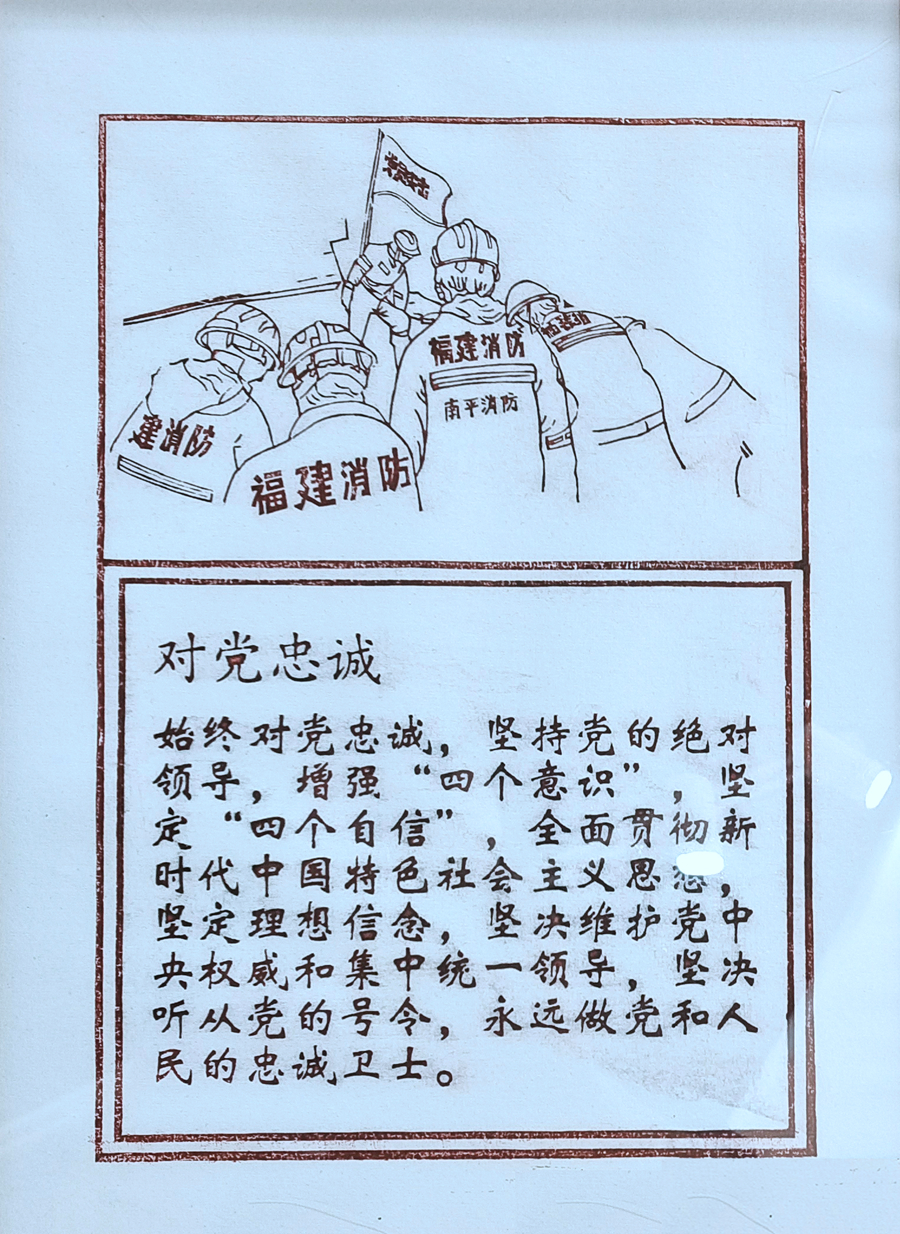 党员突击
福建消防
南平消防
建消防
福建消防
对党忠诚
始终对党忠诚，坚持党的绝对
领导，增强“四个意识”，坚
定“四个自信”，全面贯彻新
时代中国特色社会主义思想，
坚定理想信念，坚决维护党中
央权威和集中统一领导，坚决
听从党的号令，永远做党和人
民的忠诚卫士。